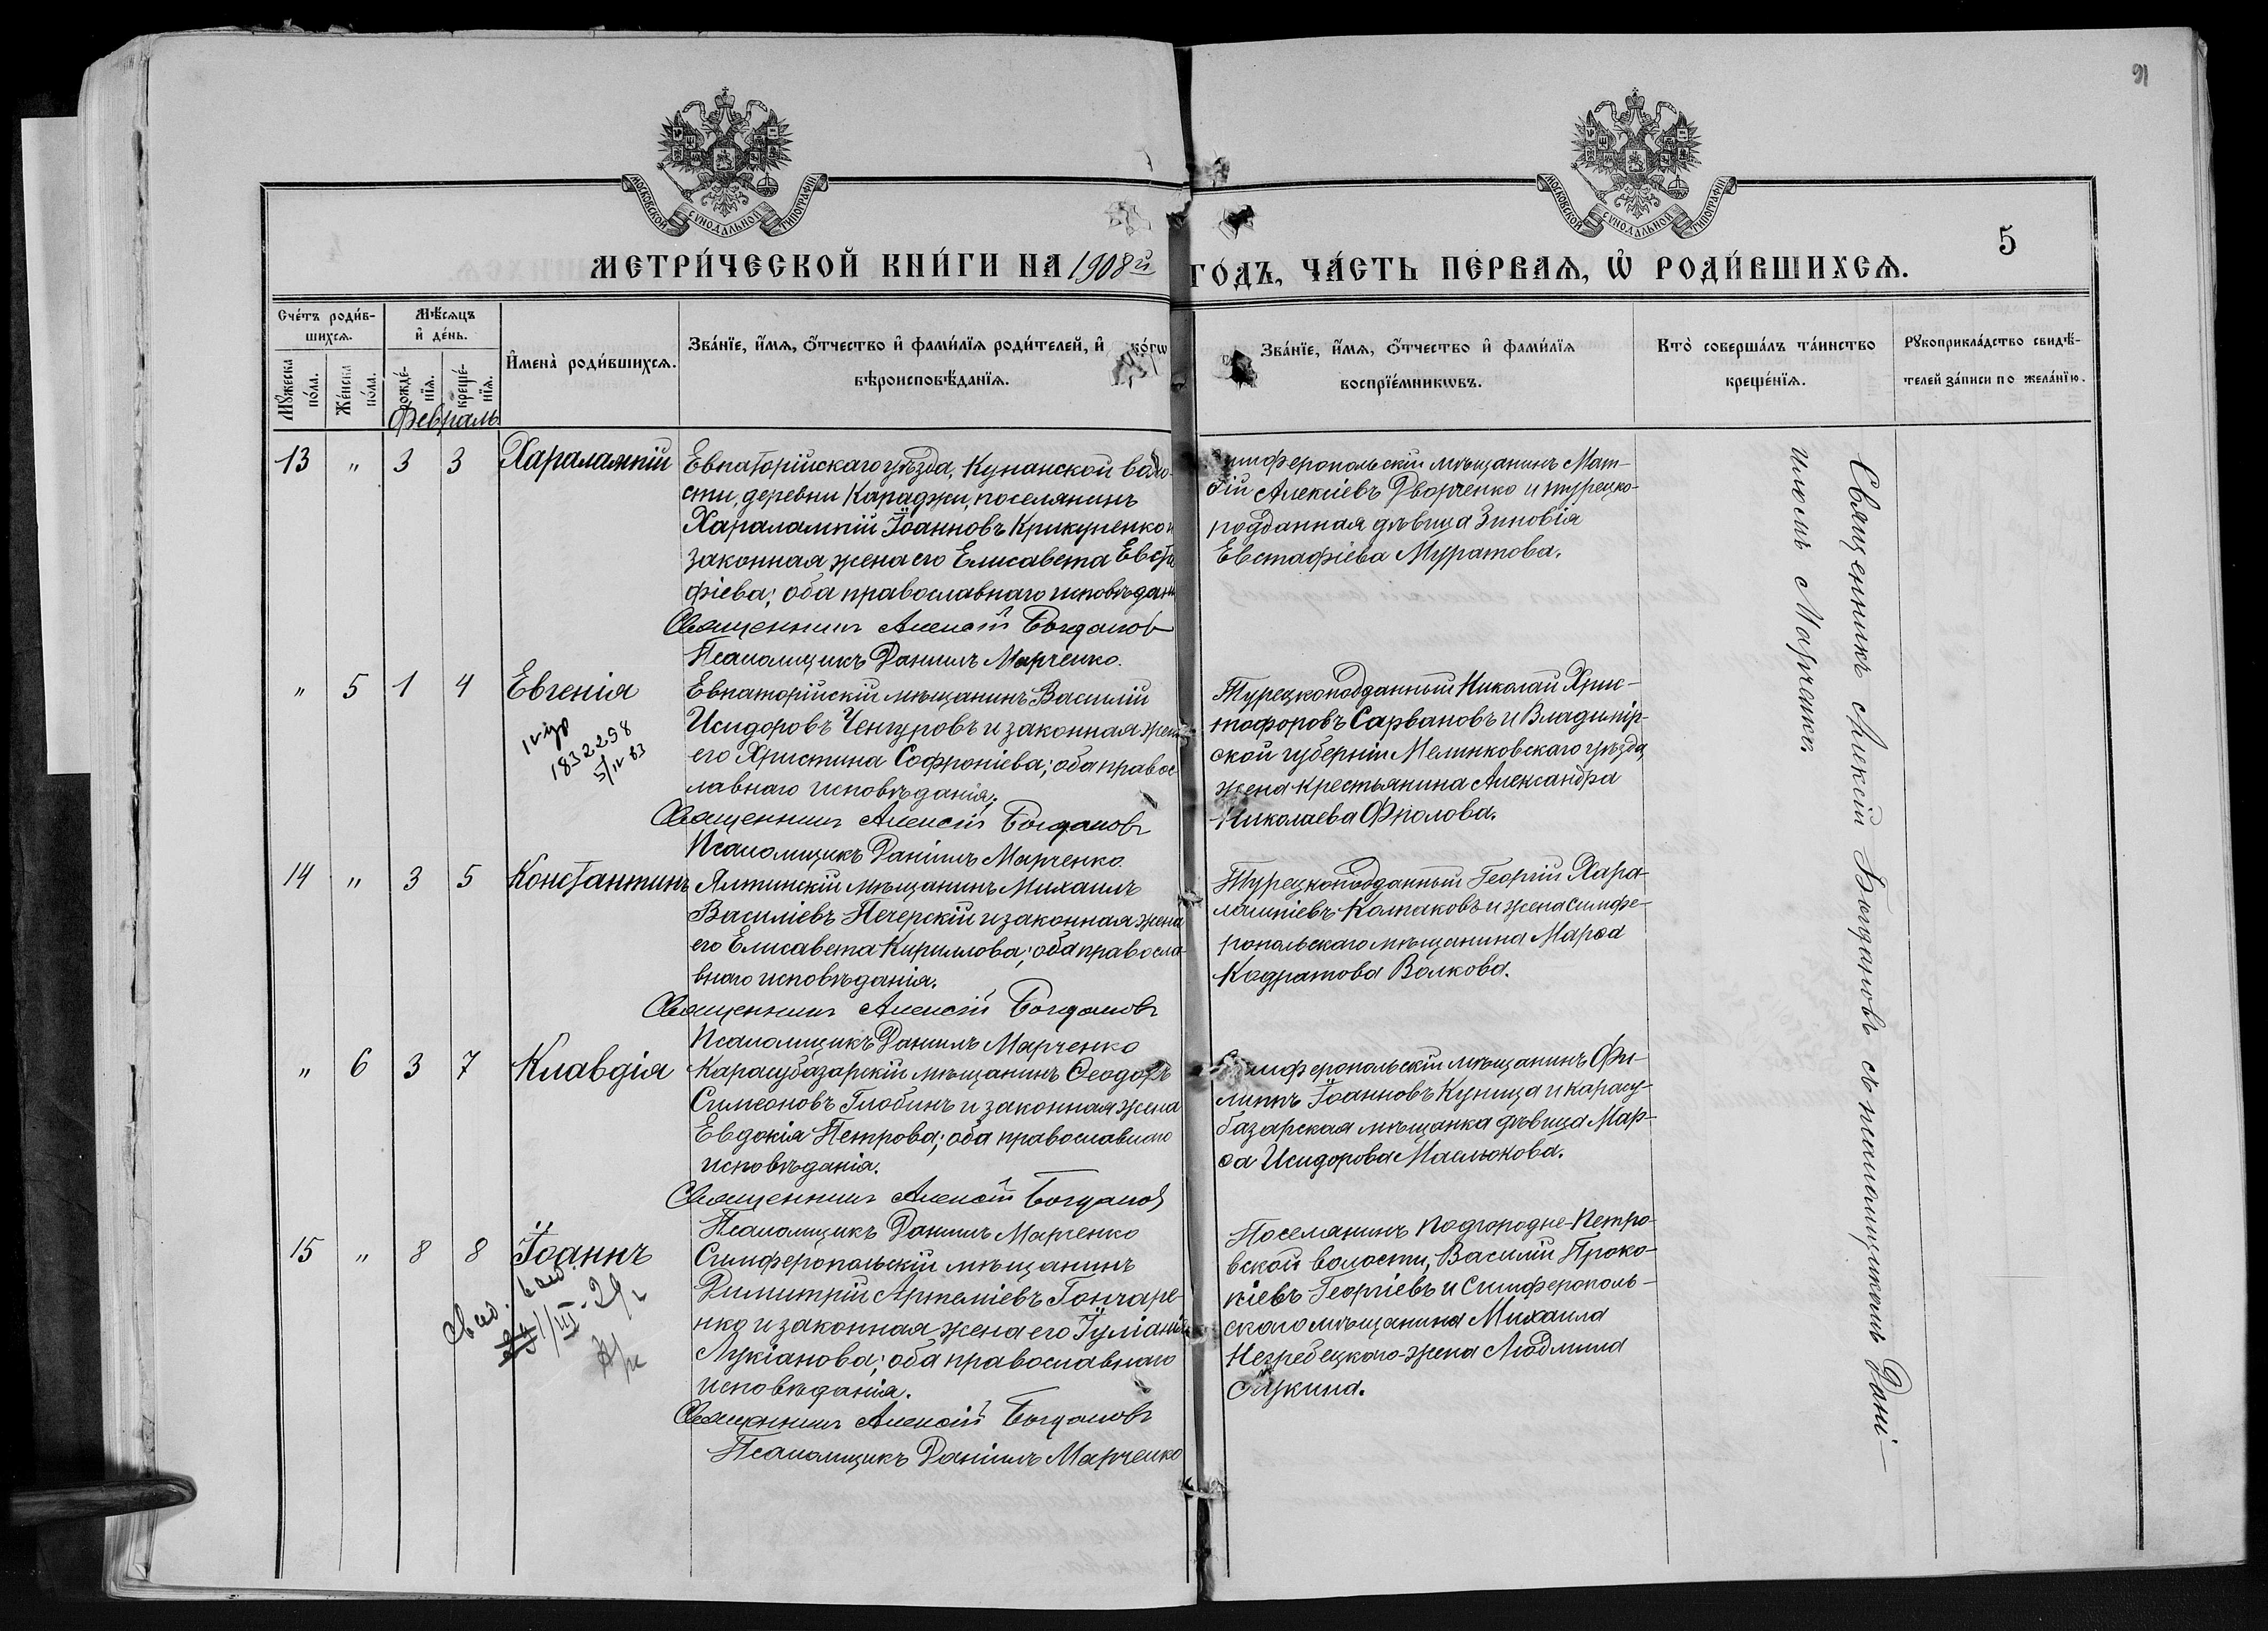 91
МОСКОВСКОЙ СУНОДАЛЬНОЙ ТИПОГРАФІИ
МОСКОВСКОЙ СУНОДАЛЬНОЙ ТИПОГРАФІИ
5
МЕТРИ́ЧЕСКОЙ КНИ́ГИ НА 1908й ГО́ДЪ, ЧА́СТЬ ПЕ́РВАѦ, Ѡ҆ РОДИ́ВШИХСѦ.
Сче́тъ роди́в-
шихсѧ.
Мꙋ́жеска по́ла.
Же́нска по́ла.
Мѣ́сѧцъ
и҆ де́нь.
рожде́-нїѧ.
креще́-нїѧ.
Февраль
И҆мена̀ роди́вшихсѧ.
Зва́нїе, и҆́мѧ, ѻ҆́тчество и҆ фами́лїѧ роди́телей, и҆ ко́гѡ
вѣроисповѣ́данїѧ.
Зва́нїе, и҆́мѧ, ѻ҆́тчество и҆ фами́лїѧ
воспрїе́мникѡвъ.
Кто̀ соверша́лъ та́инство
креще́нїѧ.
Рꙋкоприкла́дство свидѣ́-
телей за́писи по жела́нїю.
13 " 3 3 Харалампій
Евпаторійскаго уѣзда, Кунанской воло-
сти, деревни Караджи, поселянинъ
Харалампій Іоанновъ Крикуренко и
законная жена его Елисавета Евста
фіева; оба православнаго исповѣдан
Священникъ Алексій Богданов
Псаломщикъ Даниилъ Марченко.
Симферопольскій мѣщанинъ Мат-
ѳій Алексіевъ Дварченко и турецко-
подданная дѣвица Зиновія
Евстафіева Муратова.
" 5 1 4 Евгенія
1832298
5/IV 83
Евпаторійскій мѣщанинъ Василій
Исидоровъ Ченгуровъ и законная жена
его Христина Софроніева; оба правос-
лавнаго исповѣданія;
Священникъ Алексій Богдановъ
Псаломщикъ Даніилъ Марченко
Турецкоподданный Николай Хрис-
тофоровъ Сарвановъ и Владимір-
ской губерніи Мелинковскаго уѣзда,
жена крестьянина Александра
Николаева Фролова.
14 " 3 5 Константинъ
Ялтинскій мѣщанинъ Михаилъ
Василіевъ Печерскій и законная жена
его Елисавета Кириллова; оба правосла-
внаго исповѣданія.
Священникъ Алексій Богдановъ
Псаломщикъ Даниилъ Марченко
Турецкоподданный Георгій Хара-
лампіевъ Колпаковъ и жена симфе-
ропольскаго мѣщанина Марѳа
Кодратова Волкова.
" 6 3 7 Клавдія
Карасубазарскій мѣщанинъ Ѳеодоръ
Симеоновъ Глобинъ и законная жена
Евдокія Петрова; оба православнаго
исповѣданія.
Священникъ Алексій Богданов
Псаломщикъ Даниилъ Марченко
Симферопольскій мѣщанинъ Фи-
липпъ Іоанновъ Куница и карасу-
базарская мѣщанка дѣвица Мар-
ѳа Исидорова Маслюкова.
15 " 8 8 Іоаннъ
Симферопольскій мѣщанинъ
Димитрій Артеміевъ Гончаре-
нко и законная жена его Іуліанія
Лукіанова; оба православнаго
исповѣданія.
Священникъ Алексій Богдановъ
Псаломщикъ Даніилъ Марченко
Поселянинъ Подгородне-Петро-
вской волости, Василій Проко-
піевъ Георгіевъ и Симферополь-
скаго мѣщанина Михаила
Негребецкаго-жена Людмила
Священникъ Алексій Богдановъ съ псаломщикомъ Дані-
иломъ Марченко.